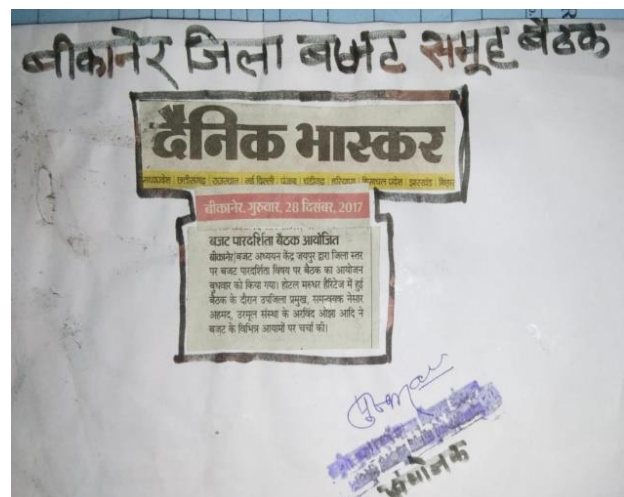 बीकानेर जिला बजट समूह बैठक
दैनिक भास्कर
मध्यप्रदेश | छत्तीसगढ़ | राजस्थान | नई दिल्ली | पंजाब | चंडीगढ़ | हरियाणा | हिमाचल प्रदेश | झारखंड | बिहार
बीकानेर, गुरुवार, 28 दिसंबर, 2017
बजट पारदर्शिता बैठक आयोजित
बीकानेर| बजट अध्ययन केंद्र जयपुर द्वारा जिला स्तर
पर बजट पारदर्शिता विषय पर बैठक का आयोजन
बुधवार को किया गया। होटल मरुधर हैरिटेज में हुई
बैठक के दौरान उपजिला प्रमुख, समन्वयक नेसार
अहमद, उरमूल संस्था के अरविंद ओझा आदि ने
बजट के विभिन्न आयामों पर चर्चा की।
संयोजक